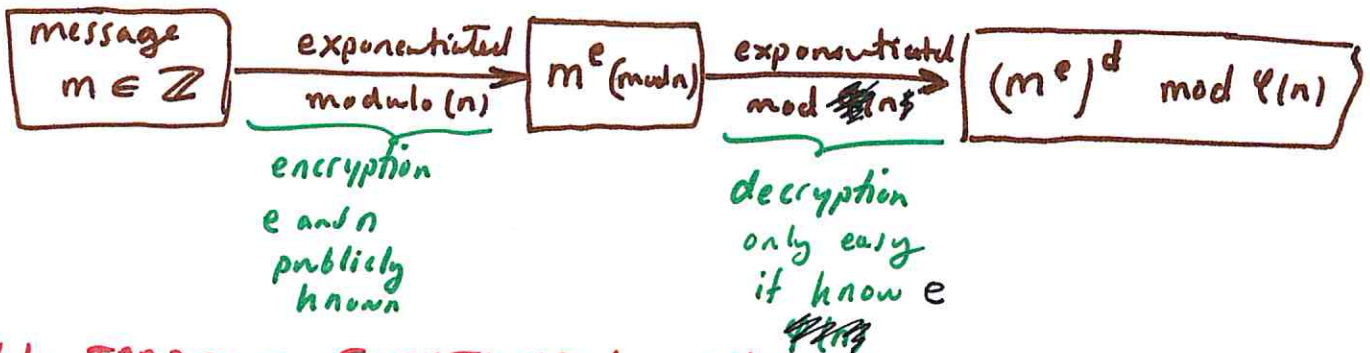 message
m ∈ ℤ
exponentiated
modulo (n)
m^e (mod n)
exponentiated
mod (n)
(m^e)^d mod φ(n)
encryption
e and n
publicly
known
decryption
only easy
if know e